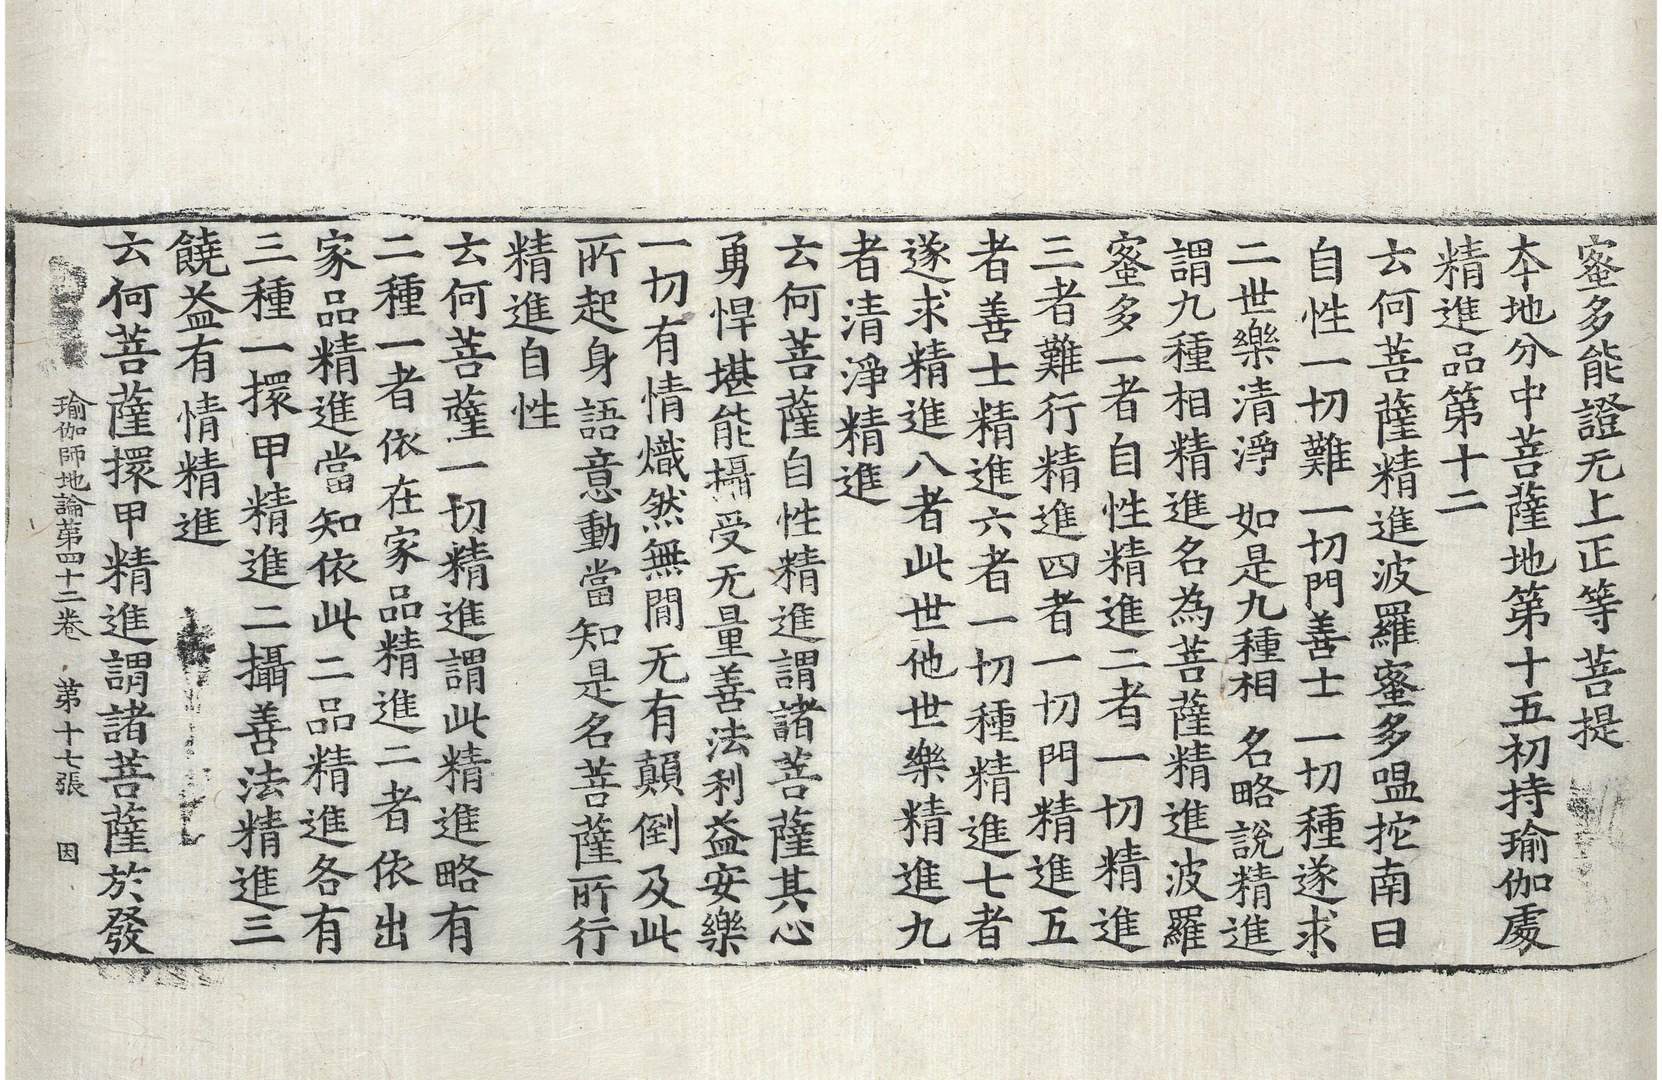 蜜多能證无上正等菩提
本地分中菩薩地第十五初持瑜伽處
精進品第十二
云何菩薩精進波羅蜜多嗢拕南曰
自性一切難一切門善士一切種遂求
二世樂清淨如是九種相名略說精進
謂九種相精進名為菩薩精進波羅
蜜多一者自性精進二者一切精進
三者難行精進四者一切門精進五
者善士精進六者一切種精進七者
遂求精進八者此世他世樂精進九
者清淨精進
云何菩薩自性精進謂諸菩薩其心
勇悍堪能攝受无量善法利益安樂
一切有情熾然無閒无有顛倒及此
所起身語意動當知是名菩薩所行
精進自性
云何菩薩一切精進謂此精進略有
二種一者依在家品精進二者依出
家品精進當知依此二品精進各有
三種一擐甲精進二攝善法精進三
饒益有情精進
云何菩薩擐甲精進謂諸菩薩於發
瑜伽師地論第四十二卷 第十七張 因